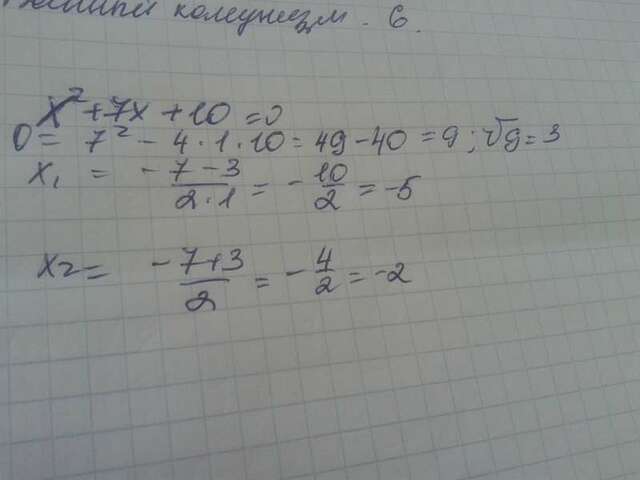 комунизм. 6.
x² + 7x + 10 = 0
D = 7² - 4 · 1 · 10 = 49 - 40 = 9; √9 = 3
x₁ = -7 - 3 / 2 · 1 = - 10 / 2 = -5
x₂ = -7 + 3 / 2 = - 4 / 2 = -2